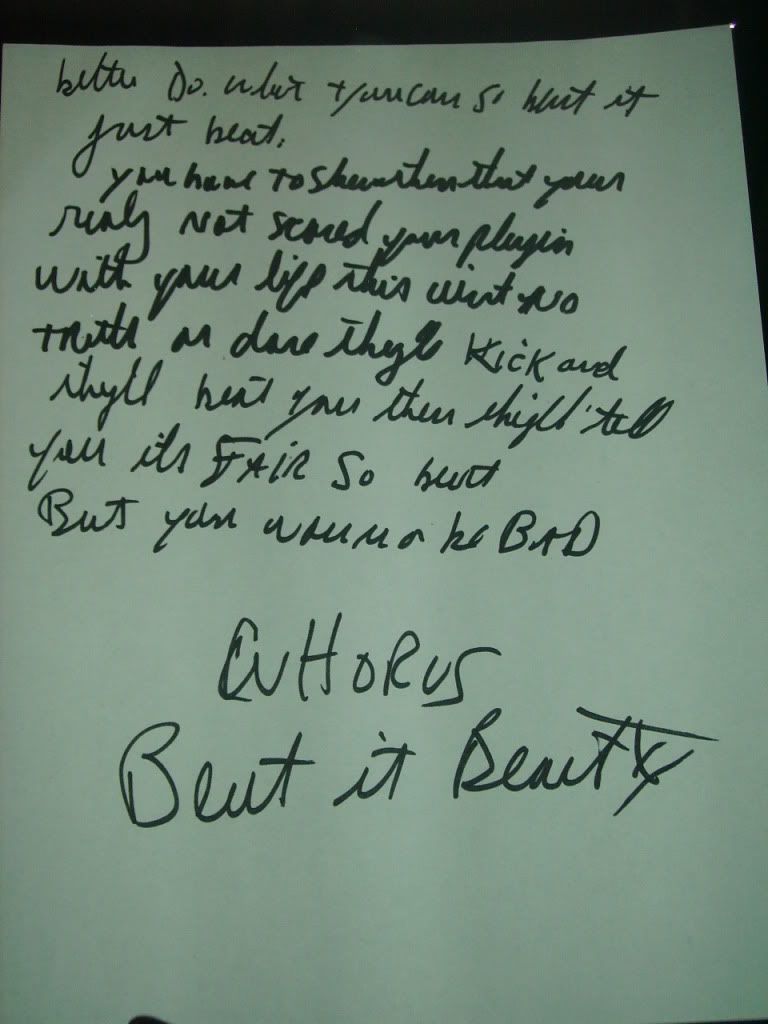 better Do. what you can so beat it
just beat.
you have to show them that your
realy not scared your playin
with your life this aint no
truth or dare they'll Kick and
they'll beat you then they'll tell
you its FAIR So beat
But you wanna be BAD
CHORUS
Beat it Beat